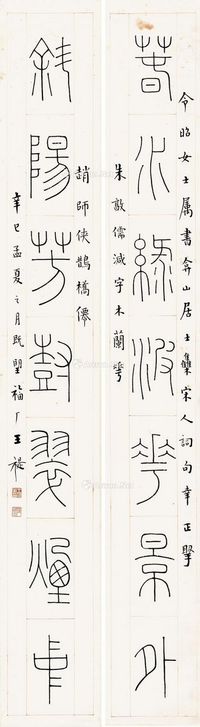 令昭女士属書弇山居士集宋人詞句幸正擘
春水綠波花景外
朱敦儒減字木蘭花
趙師俠鵲橋僊
斜陽芳樹翠煙中
辛巳孟夏之月既望福厂王禔